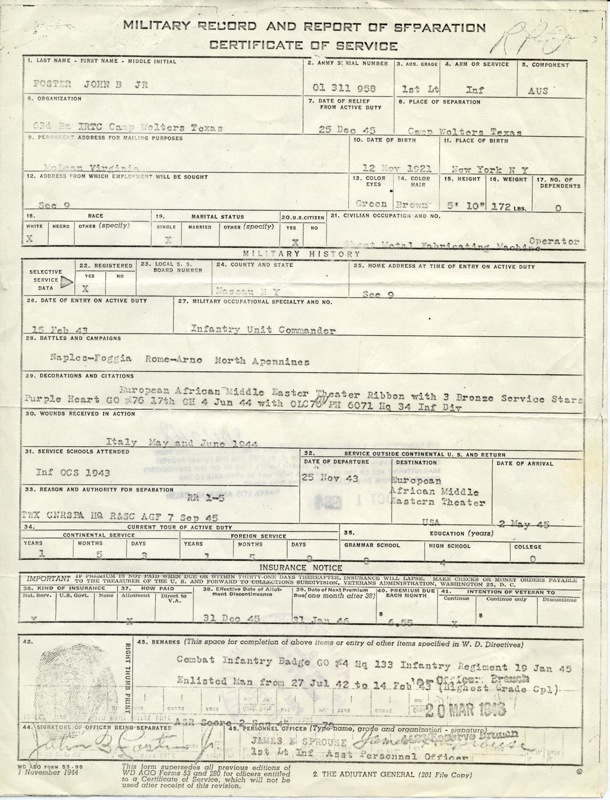 MILITARY RECORD AND REPORT OF SEPARATION
CERTIFICATE OF SERVICE
1. LAST NAME - FIRST NAME - MIDDLE INITIAL
2. ARMY SERIAL NUMBER
3. AUS. GRADE
4. ARM OR SERVICE
5. COMPONENT
FOSTER JOHN B JR
01 311 958
1st Lt
Inf
AUS
6. ORGANIZATION
7. DATE OF RELIEF FROM ACTIVE DUTY
8. PLACE OF SEPARATION
63d Bn IRTC Camp Wolters Texas
25 Dec 45
Camp Wolters Texas
9. PERMANENT ADDRESS FOR MAILING PURPOSES
10. DATE OF BIRTH
11. PLACE OF BIRTH
McLean Virginia
12 Nov 1921
New York N Y
12. ADDRESS FROM WHICH EMPLOYMENT WILL BE SOUGHT
13. COLOR EYES
14. COLOR HAIR
15. HEIGHT
16. WEIGHT
17. NO. OF DEPENDENTS
See 9
Green
Brown
5' 10"
172 LBS.
0
18. RACE
19. MARITAL STATUS
20. U.S. CITIZEN
21. CIVILIAN OCCUPATION AND NO.
WHITE
NEGRO
OTHER (specify)
SINGLE
MARRIED
OTHER (specify)
YES
NO
X
X
X
Sheet Metal Fabricating Machine Operator
MILITARY HISTORY
SELECTIVE SERVICE DATA
22. REGISTERED
YES
NO
X
23. LOCAL S. S. BOARD NUMBER
24. COUNTY AND STATE
25. HOME ADDRESS AT TIME OF ENTRY ON ACTIVE DUTY
Nassau N Y
See 9
26. DATE OF ENTRY ON ACTIVE DUTY
27. MILITARY OCCUPATIONAL SPECIALTY AND NO.
15 Feb 43
Infantry Unit Commander
28. BATTLES AND CAMPAIGNS
Naples-Foggia Rome-Arno North Apennines
29. DECORATIONS AND CITATIONS
European African Middle Easter Theater Ribbon with 3 Bronze Service Stars
Purple Heart GO #76 17th GH 4 Jun 44 with OLC PH 6071 Hq 34 Inf Div
30. WOUNDS RECEIVED IN ACTION
Italy May and June 1944
31. SERVICE SCHOOLS ATTENDED
32. SERVICE OUTSIDE CONTINENTAL U. S. AND RETURN
DATE OF DEPARTURE
DESTINATION
DATE OF ARRIVAL
Inf OCS 1943
25 Nov 43
European
African Middle
Eastern Theater
33. REASON AND AUTHORITY FOR SEPARATION
RR 1-5
TWX CNRSPA HQ R&SC AGF 7 Sep 45
USA
2 May 45
34. CURRENT TOUR OF ACTIVE DUTY
35. EDUCATION (years)
CONTINENTAL SERVICE
FOREIGN SERVICE
YEARS
MONTHS
DAYS
YEARS
MONTHS
DAYS
GRAMMAR SCHOOL
HIGH SCHOOL
COLLEGE
1
5
3
1
5
8
4
0
INSURANCE NOTICE
IMPORTANT IF PREMIUM IS NOT PAID WHEN DUE OR WITHIN THIRTY-ONE DAYS THEREAFTER, INSURANCE WILL LAPSE. MAKE CHECKS OR MONEY ORDERS PAYABLE
TO THE TREASURER OF THE U. S. AND FORWARD TO COLLECTIONS SUBDIVISION, VETERANS ADMINISTRATION, WASHINGTON 25, D. C.
36. KIND OF INSURANCE
37. HOW PAID
38. Effective Date of Allotment Discontinuance
39. Date of Next Premium Due (one month after 38)
40. PREMIUM DUE EACH MONTH
41. INTENTION OF VETERAN TO
Nat. Serv.
U.S. Govt.
None
Allotment
Direct to V.A.
Continue
Continue only
Discontinue
X
X
31 Dec 45
31 Jan 46
$ 6.55
X
42.
RIGHT THUMB PRINT
43. REMARKS (This space for completion of above items or entry of other items specified in W. D. Directives)
Combat Infantry Badge GO #4 Hq 133 Infantry Regiment 19 Jan 45
Enlisted Man from 27 Jul 42 to 14 Feb 43 (Highest Grade Cpl)
Officer Branch
20 MAR 1946
ASR Score 2 Sep 45 - 79
44. SIGNATURE OF OFFICER BEING SEPARATED
45. PERSONNEL OFFICER (Type name, grade and organization - signature)
John B Foster Jr.
JAMES E SPROUSE
1st Lt Inf Asst Personnel Officer
WD AGO FORM 53-98
1 November 1944
This form supersedes all previous editions of
WD AGO Forms 53 and 280 for officers entitled
to a Certificate of Service, which will not be
used after receipt of this revision.
2. THE ADJUTANT GENERAL (201 File Copy)